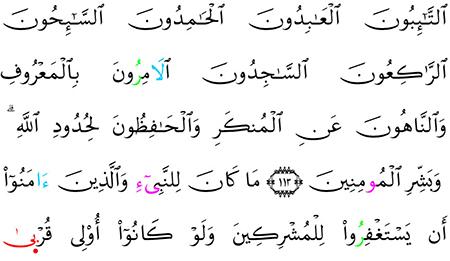 ٱلتَّـٰٓئِبُونَ ٱلۡعَـٰبِدُونَ ٱلۡحَـٰمِدُونَ ٱلسَّـٰٓئِحُونَ
ٱلرَّٰكِعُونَ ٱلسَّـٰجِدُونَ ٱلَامِرُونَ بِٱلۡمَعۡرُوفِ
وَٱلنَّاهُونَ عَنِ ٱلۡمُنكَرِ وَٱلۡحَـٰفِظُونَ لِحُدُودِ ٱللَّهِۗ
وَبَشِّرِ ٱلۡمُومِنِينَ ١١٣ مَا كَانَ لِلنَّبِيٓءِ وَٱلَّذِينَ ءَامَنُوٓاْ
أَن يَسۡتَغۡفِرُواْ لِلۡمُشۡرِكِينَ وَلَوۡ كَانُوٓاْ أُوْلِي قُرۡبىٰ